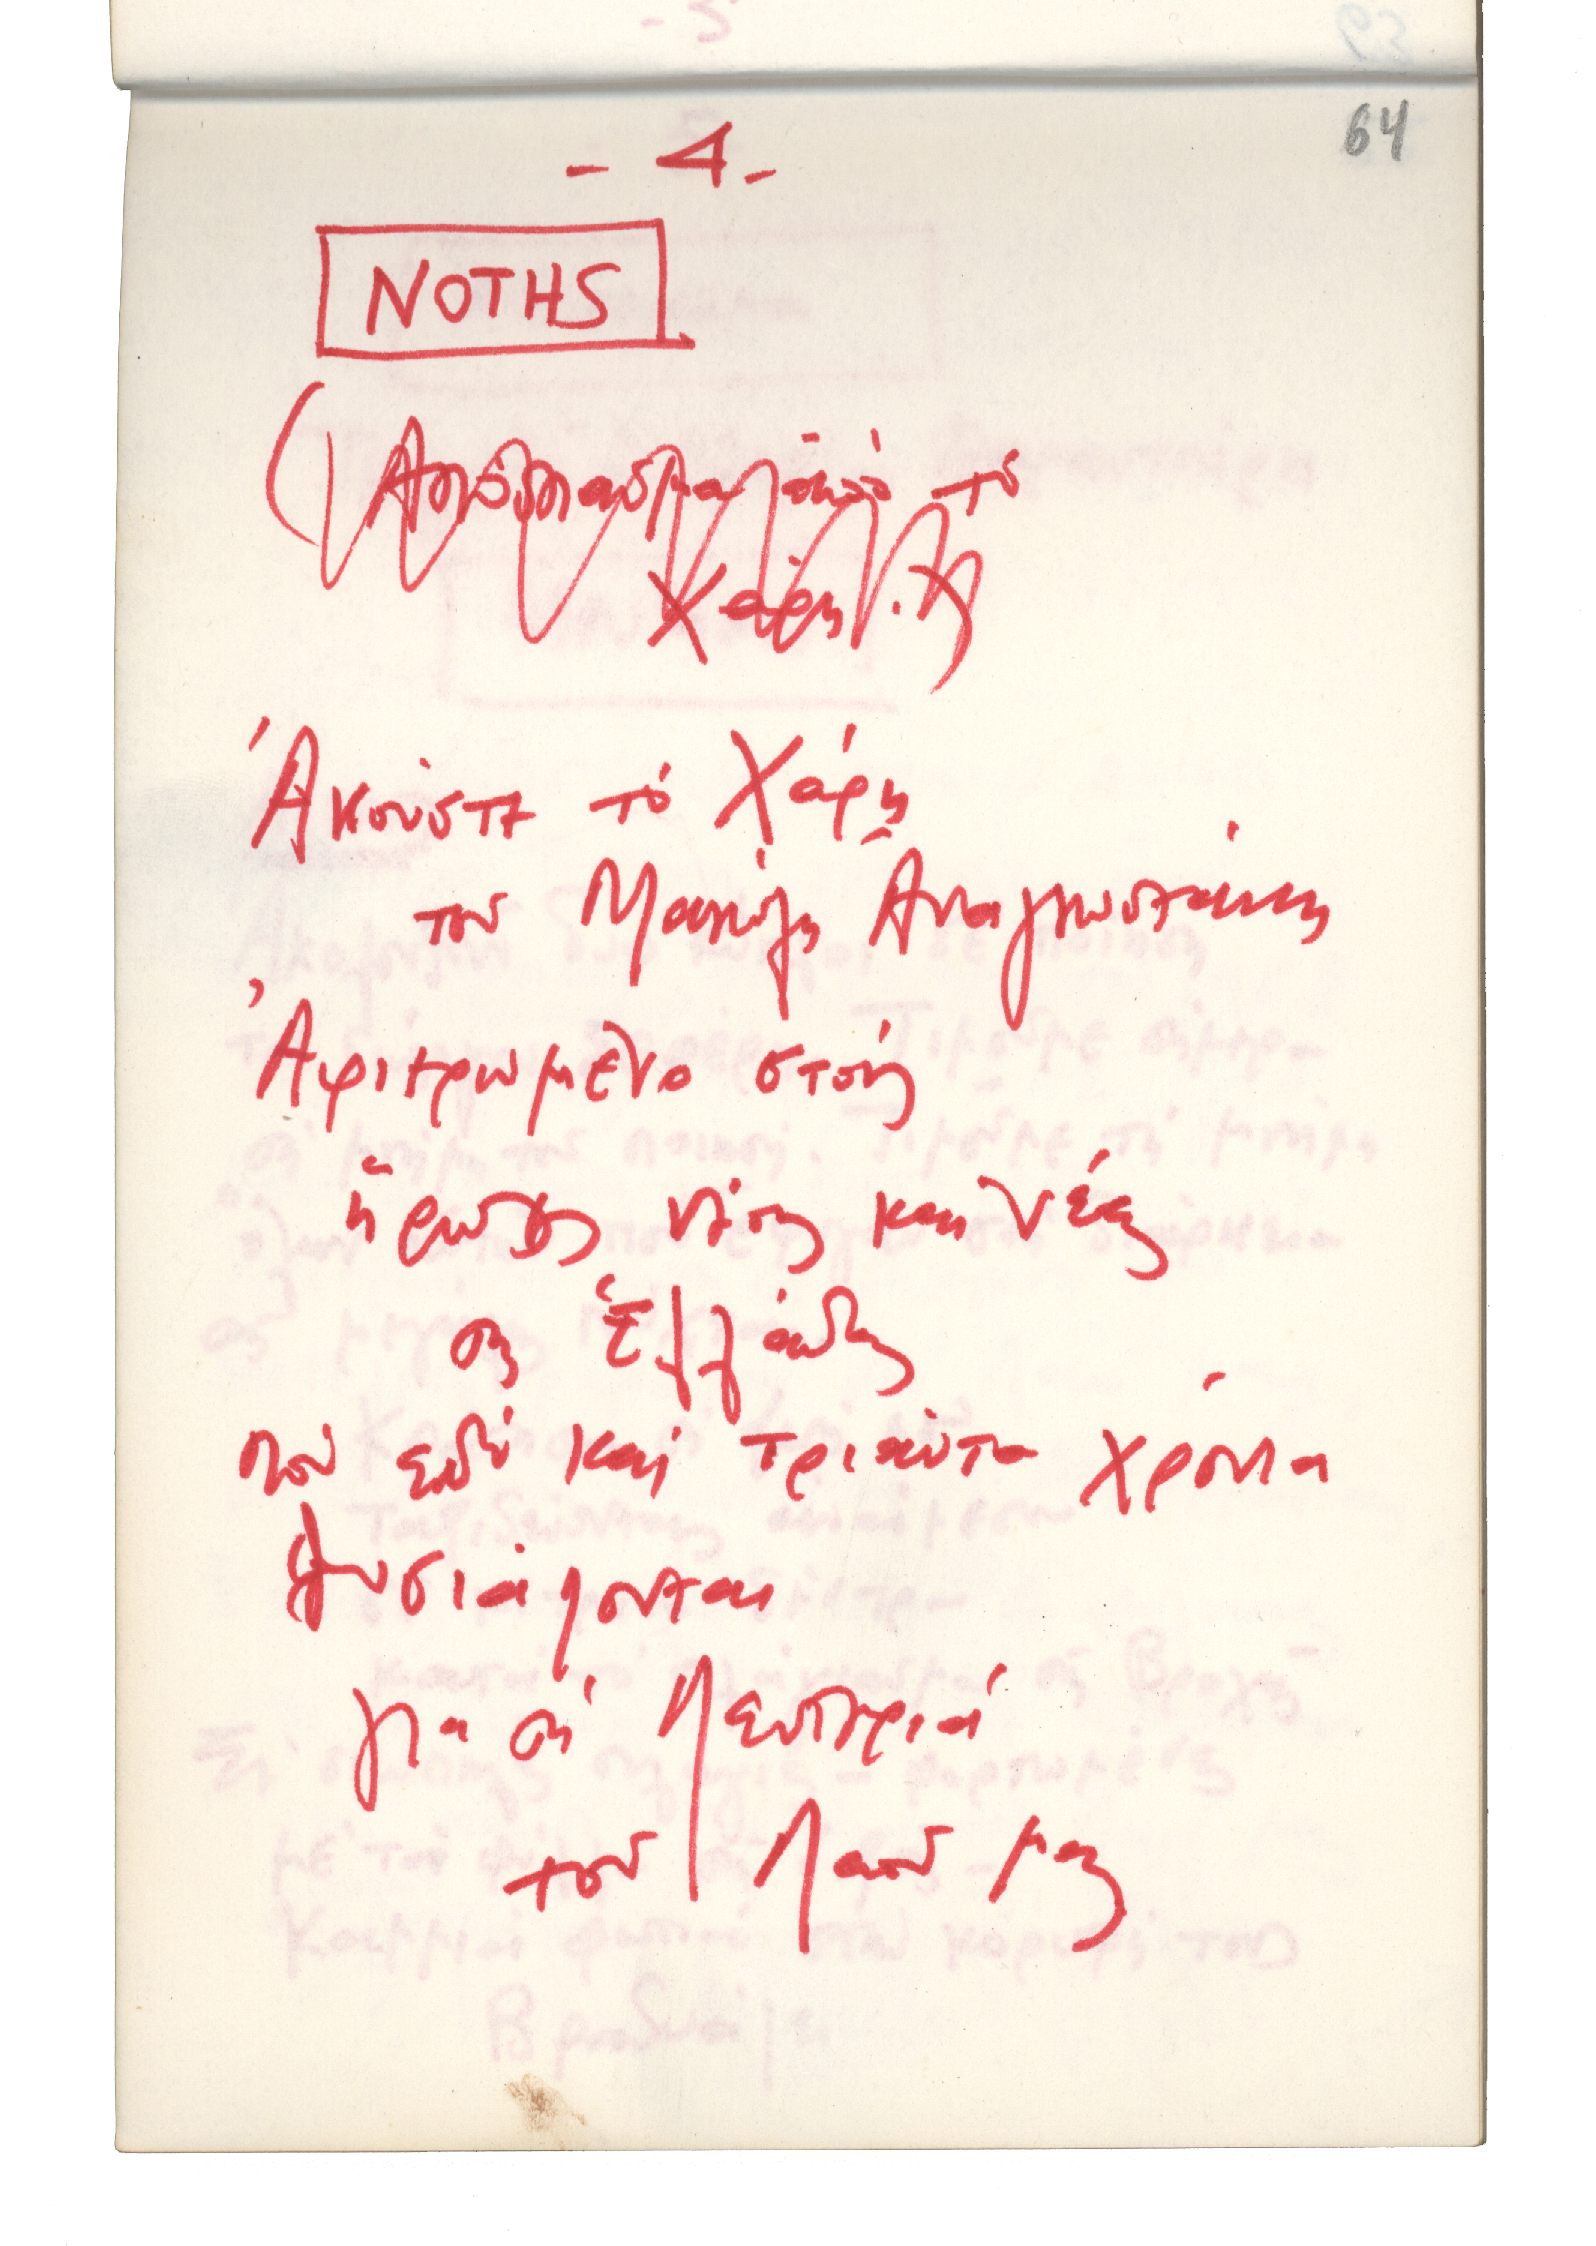 64
- 4 -
NOTHS
(Ἀπόσπασμα ἀπό τό
Χάρη.
Ἀκοῦστε τό Χάρη
τοῦ Μανώλη Ἀναγνωστάκη
Ἀφιερωμένο στούς
ἥρωες νέους καί νέες
τῆς Ἑλλάδας
πού ἐδῶ καί τριάντα χρόνια
θυσιάζονται
για τή λευτεριά
τοῦ λαοῦ μας